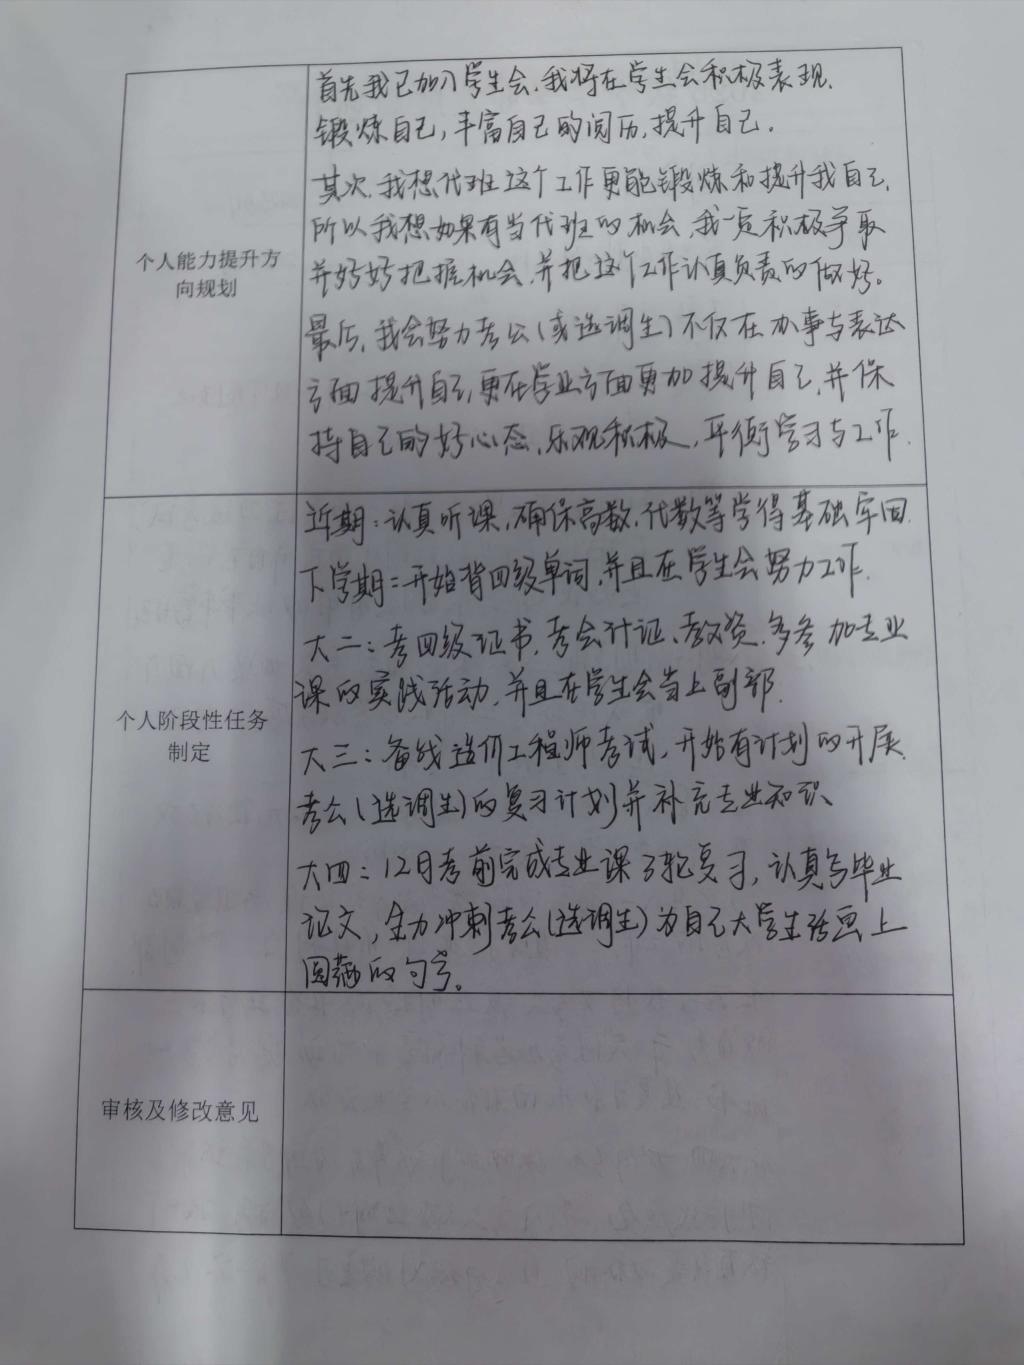 个人能力提升方
向规划
首先我已加入学生会,我将在学生会积极表现,
锻炼自己,丰富自己的阅历,提升自己.
其次,我想代班这个工作更能锻炼和提升我自己,
所以我想如果有当代班的机会,我一定积极争取
并好好把握机会,并把这个工作认真负责的做好。
最后,我会努力考公(或选调生)不仅在办事与表达
方面提升自己,更在学业方面更加提升自己,并保
持自己的好心态,乐观积极,平衡学习与工作.
个人阶段性任务
制定
近期:认真听课,确保高数,代数等学得基础牢固.
下学期:开始背四级单词,并且在学生会努力工作.
大二:考四级证书,考会计证、教资,多参加专业
课的实践活动,并且在学生会当上副部.
大三:备战造价工程师考试,开始有计划的开展
考公(选调生)的复习计划并补充专业知识、
大四:12月考前完成专业课3轮复习,认真写毕业
论文,全力冲刺考公(选调生)为自己大学生活画上
圆满的句号。
审核及修改意见